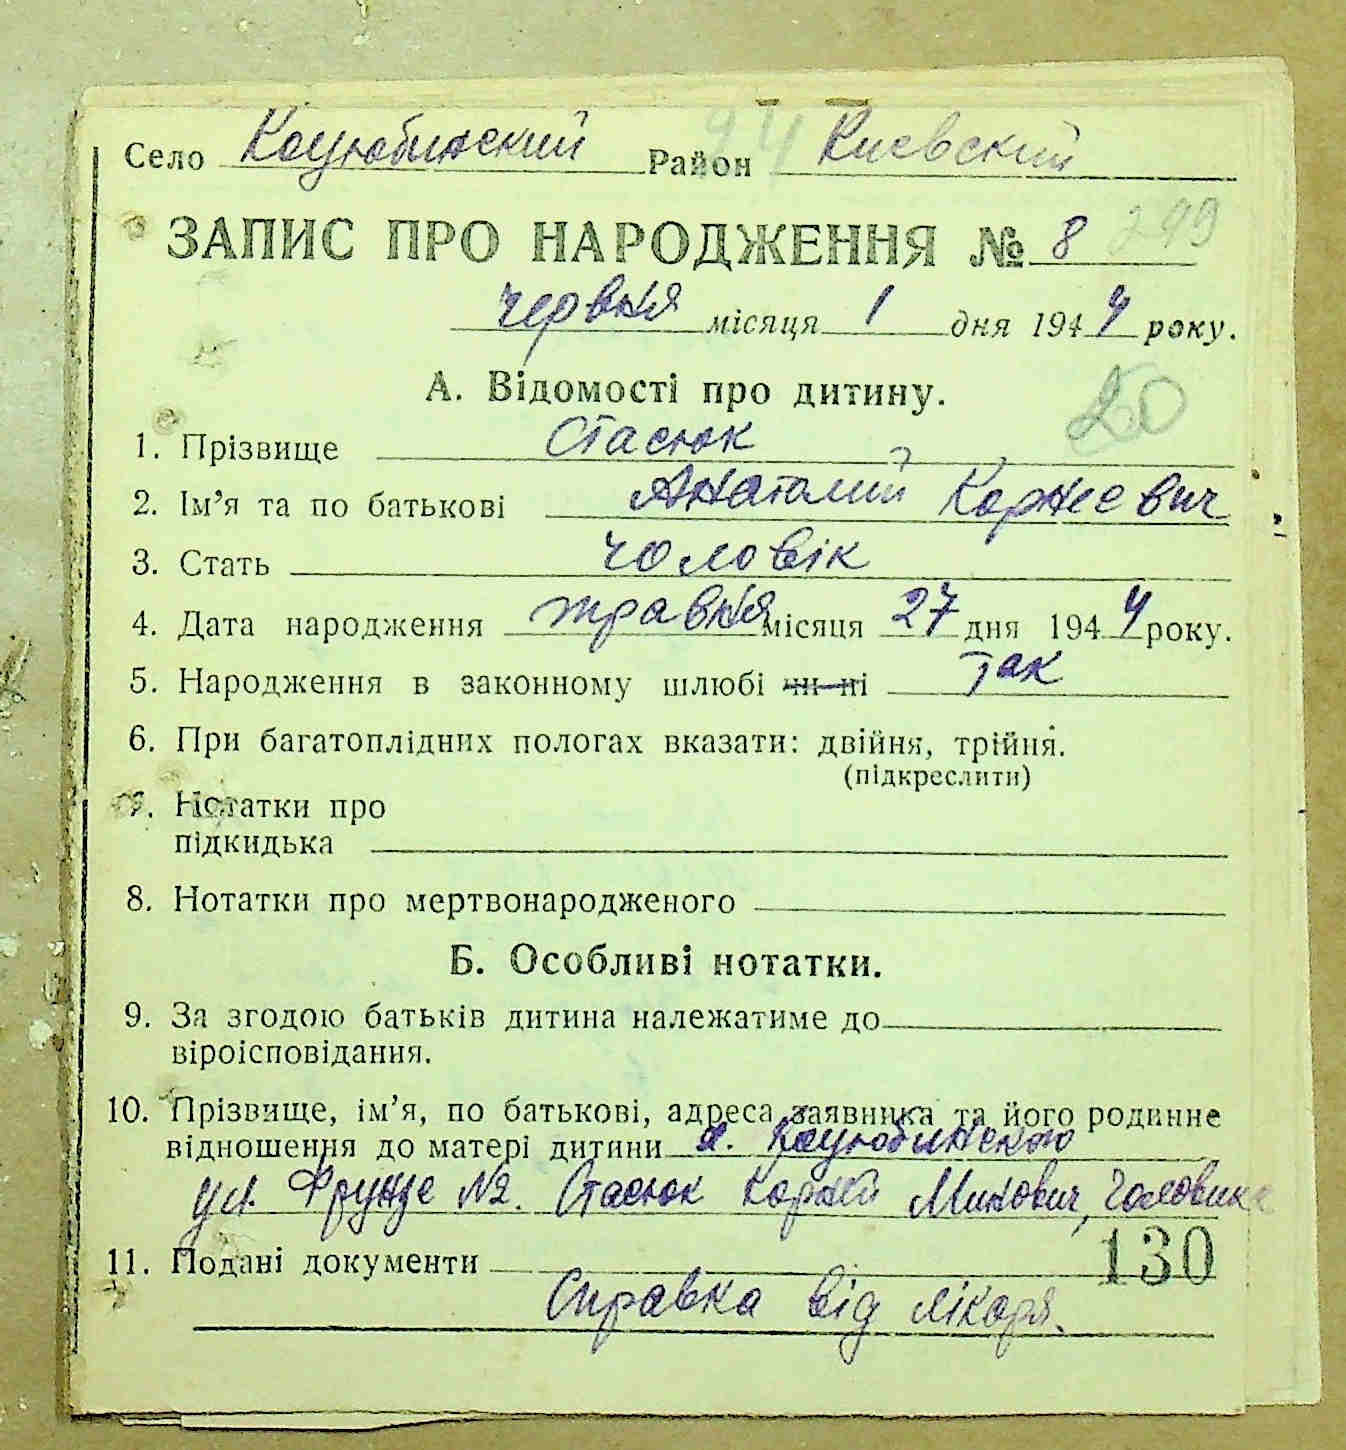 Село Коцюбинский Район Киевский
ЗАПИС ПРО НАРОДЖЕННЯ № 8 299
червня місяця 1 дня 1944 року.
А. Відомості про дитину.
20
1. Прізвище Стасюк
2. Ім’я та по батькові Анатолий Корнеевич
3. Стать чоловік
4. Дата народження травня місяця 27 дня 1944 року.
5. Народження в законному шлюбі чи ні так
6. При багатоплідних пологах вказати: двійня, трійня.
(підкреслити)
7. Нотатки про
підкидька
8. Нотатки про мертвонародженого
Б. Особливі нотатки.
9. За згодою батьків дитина належатиме до
віроісповідання.
10. Прізвище, ім’я, по батькові, адреса заявника та його родинне
відношення до матері дитини Коцюбинского
ул. Фрунзе №2. Стасюк Корней Минович, Чоловика
11. Подані документи 130
Справка від лікаря.